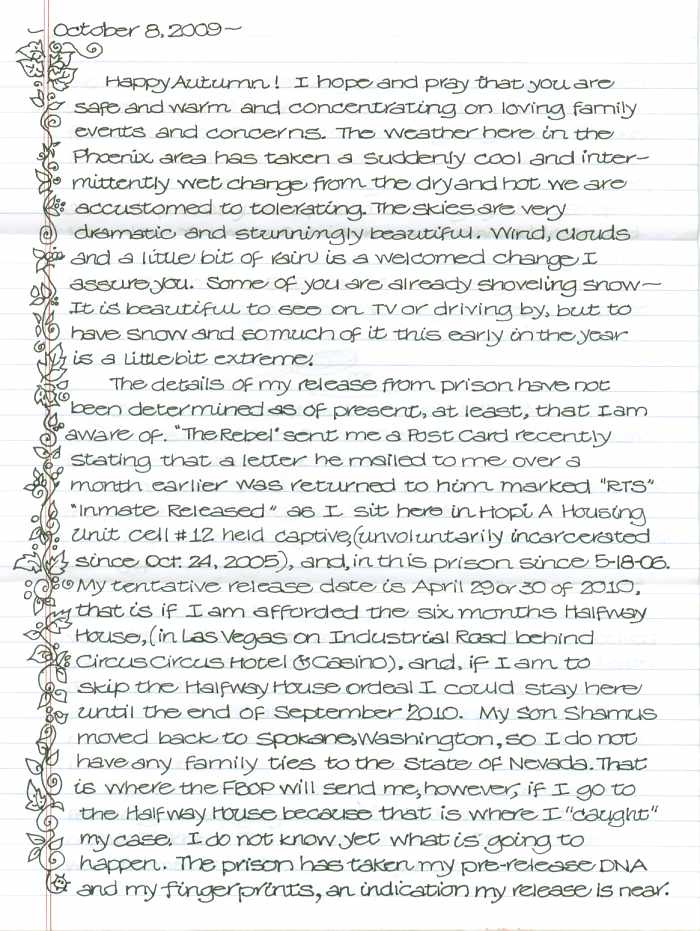 ~ October 8, 2009 ~
Happy Autumn! I hope and pray that you are
safe and warm and concentrating on loving family
events and concerns. The weather here in the
Phoenix area has taken a suddenly cool and inter-
mittently wet change from the dry and hot we are
accustomed to tolerating. The skies are very
dramatic and stunningly beautiful. Wind, clouds
and a little bit of rain is a welcomed change I
assure you. Some of you are already shoveling snow~
It is beautiful to see on TV or driving by, but to
have snow and so much of it this early in the year
is a little bit extreme!
The details of my release from prison have not
been determined as of present, at least, that I am
aware of. "The Rebel" sent me a Post Card recently
stating that a letter he mailed to me over a
month earlier was returned to him marked "RTS"
"Inmate Released" as I sit here in Hopi A Housing
Unit cell #12 held captive, (unvoluntarily incarcerated
since Oct. 24, 2005), and, in this prison since 5-18-06.
My tentative release date is April 29 or 30 of 2010,
that is if I am afforded the six months Halfway
House, (in Las Vegas on Industrial Road behind
Circus Circus Hotel & Casino), and, if I am to
skip the Halfway House ordeal I could stay here
until the end of September 2010. My son Shamus
moved back to Spokane, Washington, so I do not
have any family ties to the State of Nevada. That
is where the FBOP will send me, however, if I go to
the Halfway House because that is where I "caught"
my case. I do not know yet what is going to
happen. The prison has taken my pre-release DNA
and my fingerprints, an indication my release is near.